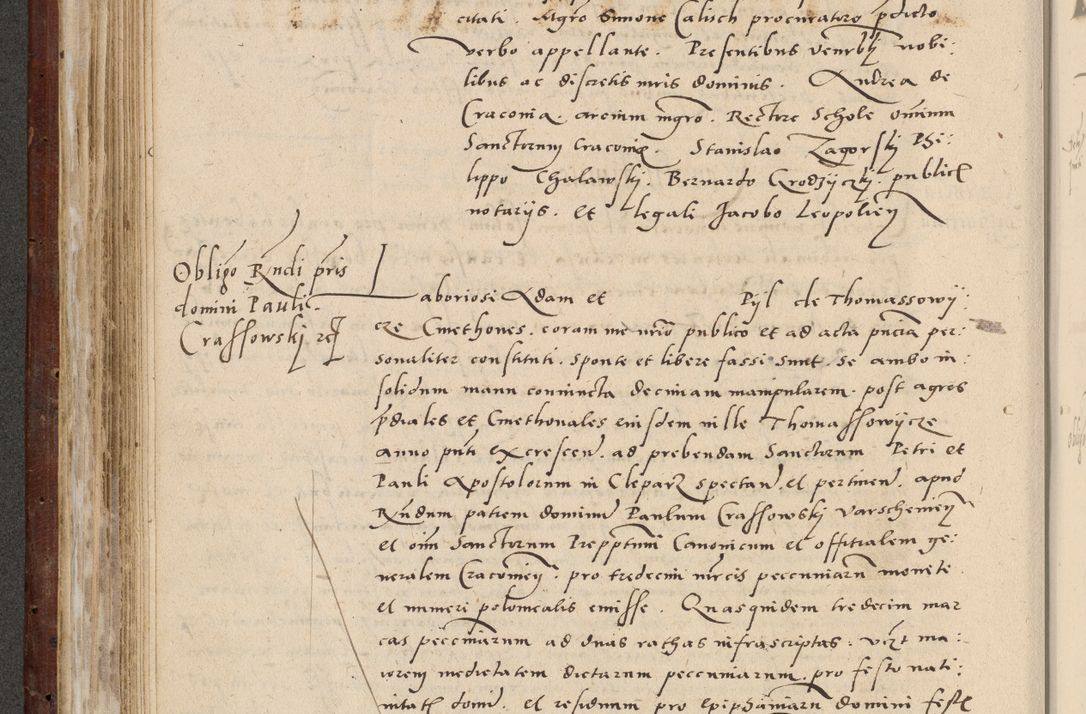 citati. Mgro Simone Calisch procuratore pdicto
verbo appellante. Presentibus venrbl nobi:
libus ac discretis viris dominis. Andrea de
Cracovia. arcium mgro. Rectore Schole omnium
Sanctorum Cracovie. Stanislao Zagorski Phi:
lippo Chalawski. Bernardo Grodzyczki. publicis
notarys. et legali Jacobo Leopolien
Obligo Rndi pris
domini Pauli
Crassowski
Laboriosi Adam et Pyl de Thomassowy:
cze Cmethones. coram me nrio publico et ad acta pncia per:
sonaliter constituti. sponte et libere fassi sunt. se ambo in:
solidum manu coniuncta decimam manipularem. post agros
pdiales et Cmethonales eiusdem ville Thomassowycze
anno pnti excrescen. ad prebendam Sanctorum Petri et
Pauli Apostolorum in Cleparz spectan. et pertinen. apud
Rndum patrem dominum Paulum Crassowski Varschewien
et oim Sanctorum Prepptum Canonicum et offitialem ge:
neralem Cracovien. pro tredecim mrcis pecuniarum monete
et numeri polonicalis emisse. Quasquidem tredecim mar
cas pecuniarum ad duas rathas infrascriptas: vizt ma:
iorem medietatem dictarum pecuniarum. pro festo nati:
vitatis domi. et residuum pro Epiphaniarum domini festis